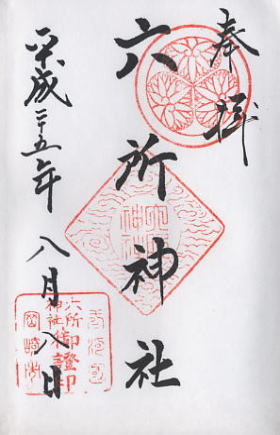 奉拝
六所神社
平成二十五年
八月八日
六所神社
御證印
岡崎市